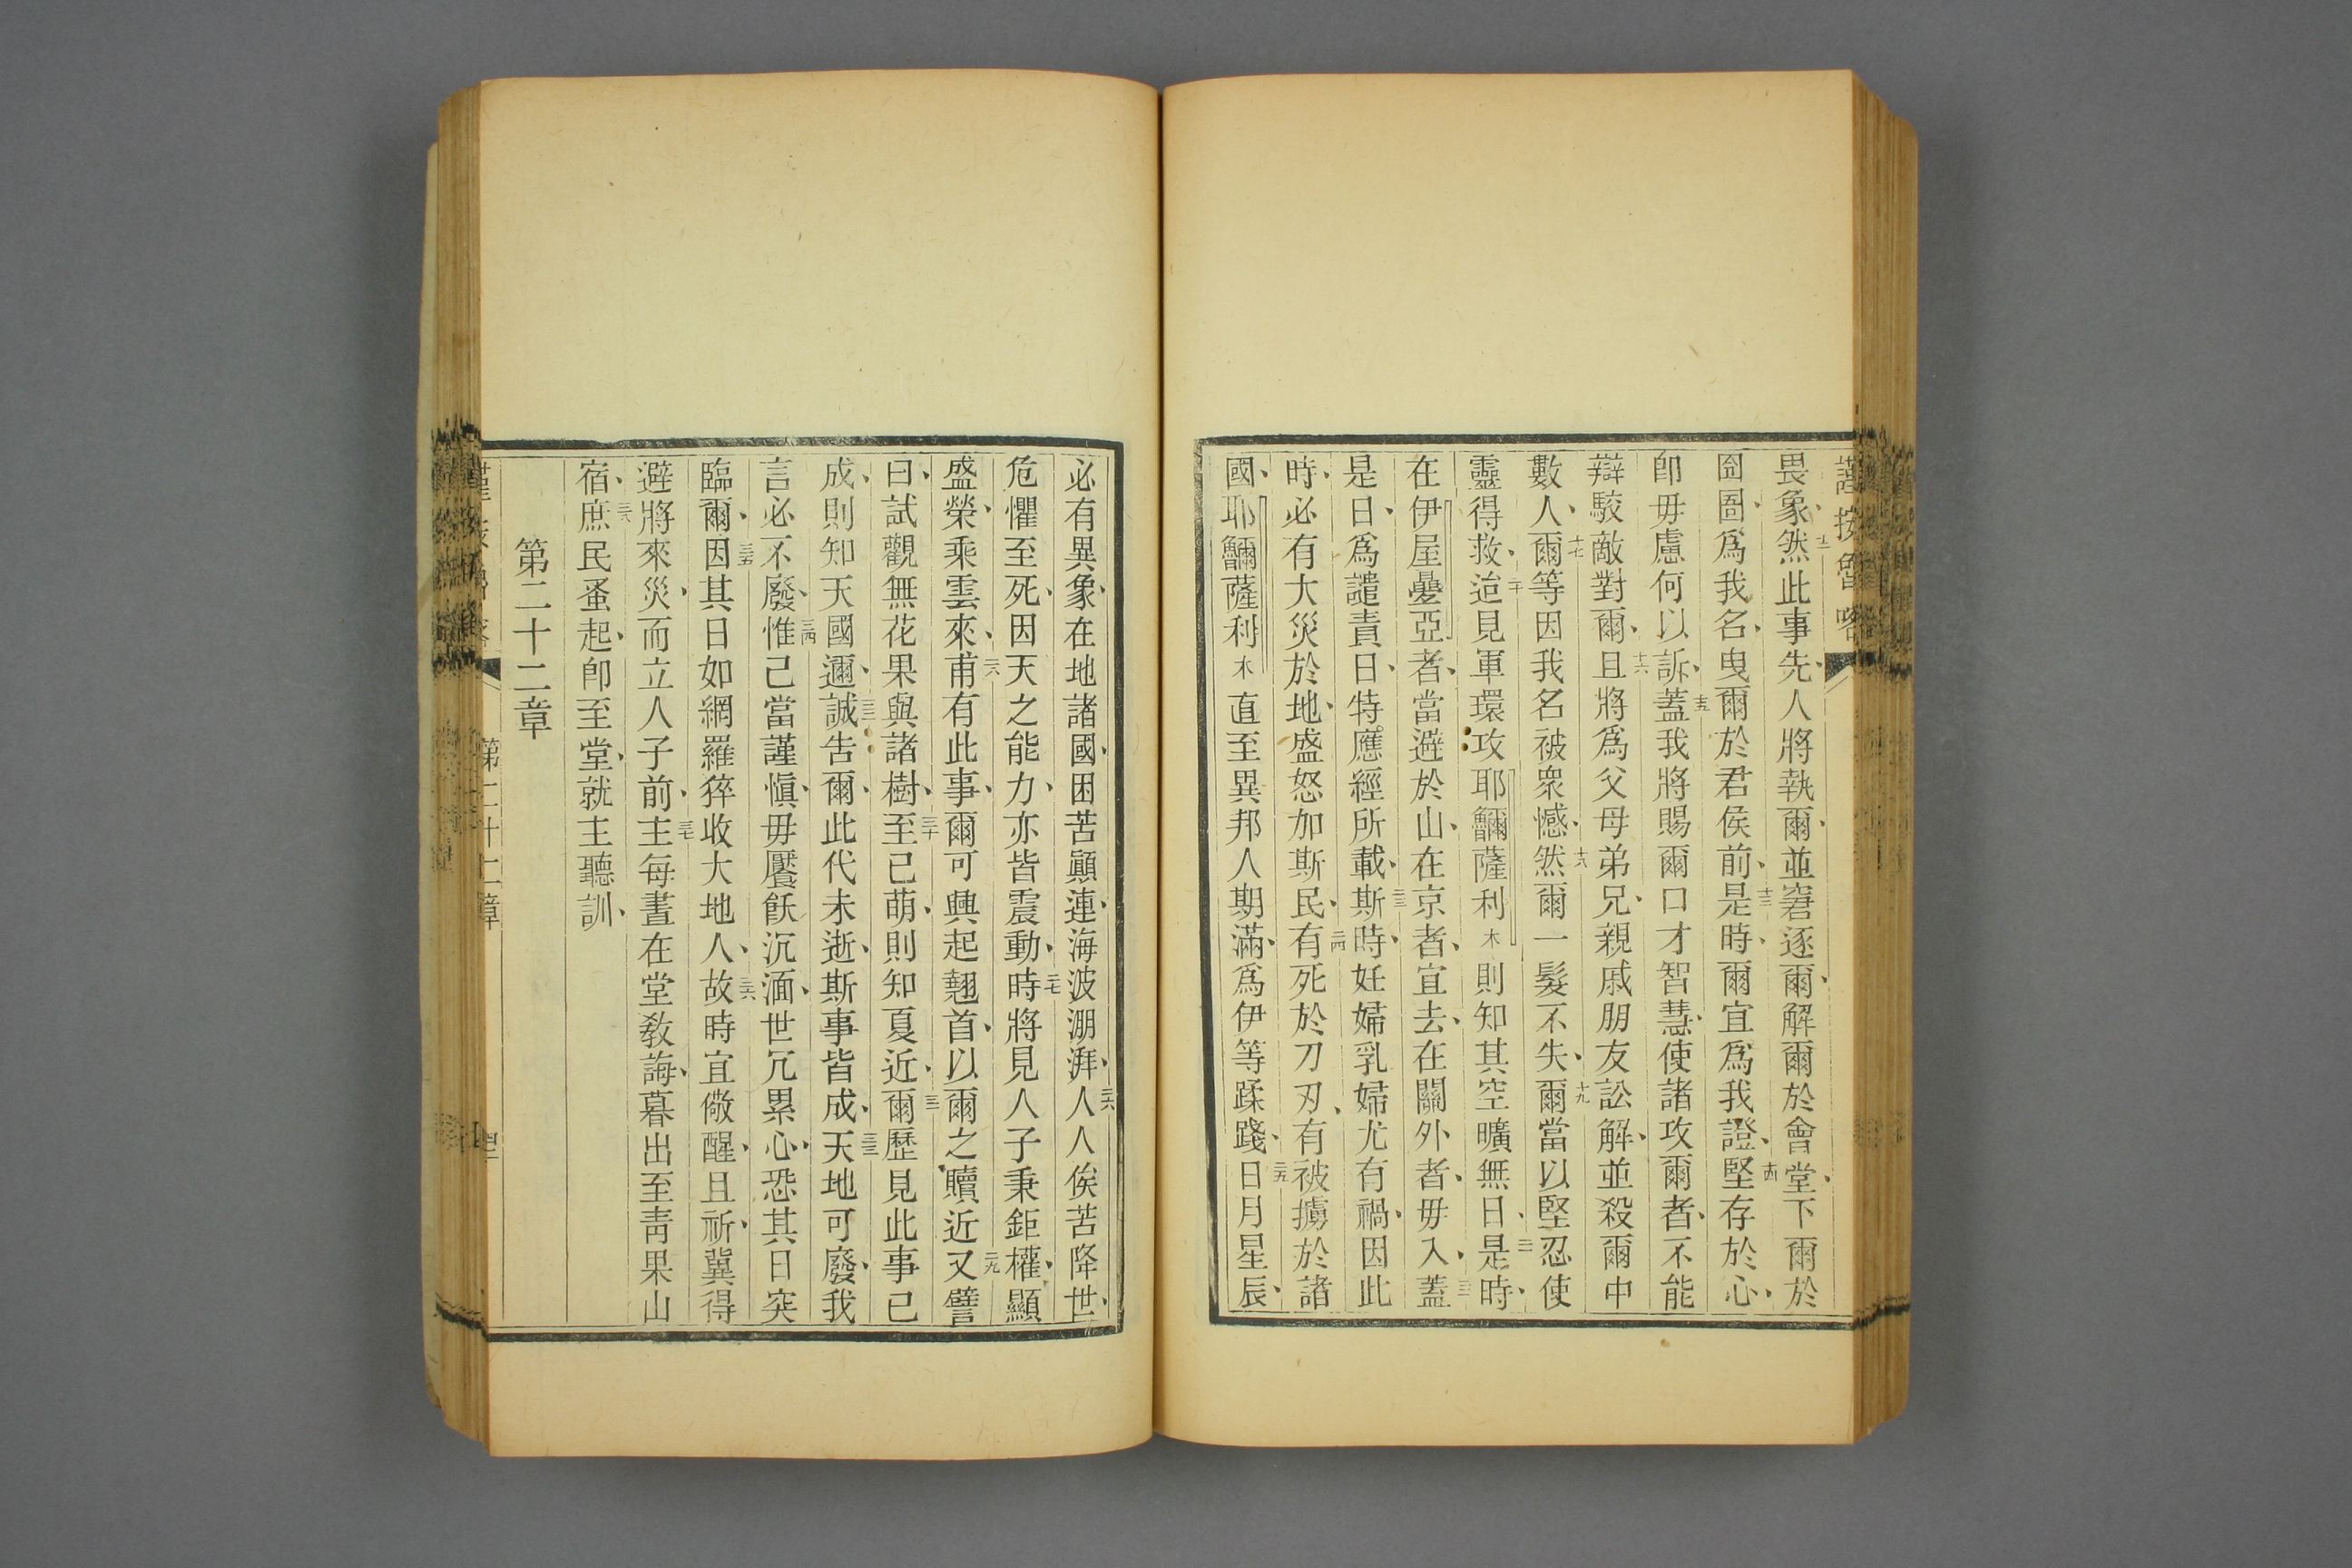 畏象、十二然此事先、人將執爾、並窘逐爾、解爾於會堂、下爾於
囹圄、爲我名、曳爾於君侯前、十三是時、爾宜爲我證、十四堅存於心、
卽毋慮何以訴、十五蓋我將賜爾口才智慧、使諸攻爾者、不能
辯駁敵對爾、十六且將爲父母弟兄、親戚朋友訟解、並殺爾中
數人、十七爾等因我名被衆憾、十八然爾一髮不失、十九爾當以堅忍使
靈得救、二十迨見軍環攻耶𩼧薩利木則知其空曠無日、二一是時、
在伊屋疊亞者、當避於山、在京者、宜去、在關外者、毋入、二二蓋
是日、爲譴責日、特應經所載、二三斯時、妊婦乳婦尤有禍、因此
時、必有大災於地、盛怒加斯民、二四有死於刀刃、有被擄於諸
國、耶𩼧薩利木直至異邦人期滿、爲伊等蹂踐、二五日月星辰、
必有異象、在地諸國、困苦顚連、海波漰湃、二六人人俟苦降世、
危懼至死、因天之能力、亦皆震動、二七時將見人子秉鉅權、顯
盛榮、乘雲來、二八甫有此事、爾可興起翹首、以爾之贖近、二九又譬
曰、試觀無花果與諸樹、三十至已萌、則知夏近、三一爾歷見此事已
成、則知天國邇、三二誠告爾、此代未逝、斯事皆成、三三天地可廢、我
言必不廢、三四惟己當謹愼、毋饜飫沉湎、世冗累心、恐其日突
臨爾、三五因其日如網羅猝收大地人、三六故時宜儆醒、且祈、冀得
避將來災、而立人子前、三七主每晝在堂教誨、暮出至靑果山
宿、三八庶民蚤起、卽至堂、就主聽訓、
第二十二章